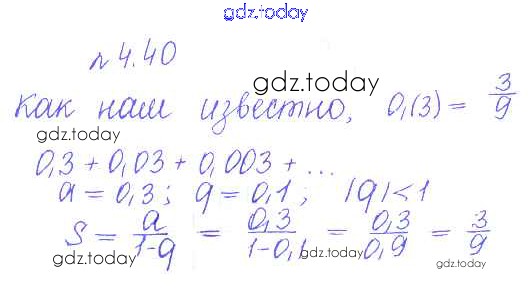 gdz.today
n 4.40
gdz.today
Как нам известно, 0,(3) = 3/9
gdz.today
0,3 + 0,03 + 0,003 + ...
a = 0,3; q = 0,1; |q| < 1
gdz.today
S = a/(1-q) = 0,3/(1-0,1) = 0,3/0,9 = 3/9
gdz.today
gdz.today
gdz.today